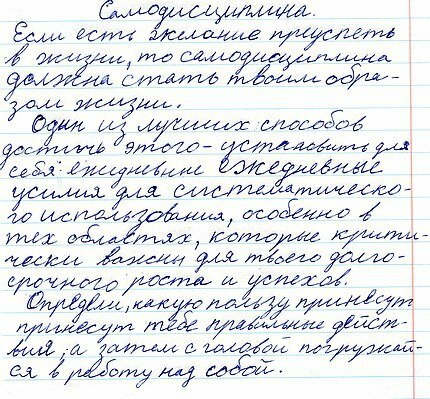 Самодисциплина.
Если есть желание приуспеть
в жизни, то самодисциплина
должна стать твоим обра-
зом жизни.
Один из лучших способов
достичь этого - установить для
себя ежедневные ежедневные
усилия для систематическо-
го использования, особенно в
тех областях, которые крити-
чески важны для твоего долго-
срочного роста и успехов.
Определи, какую пользу принесут
принесут тебе правильные дейст-
вия, а затем с головой погружай-
ся в работу над собой.